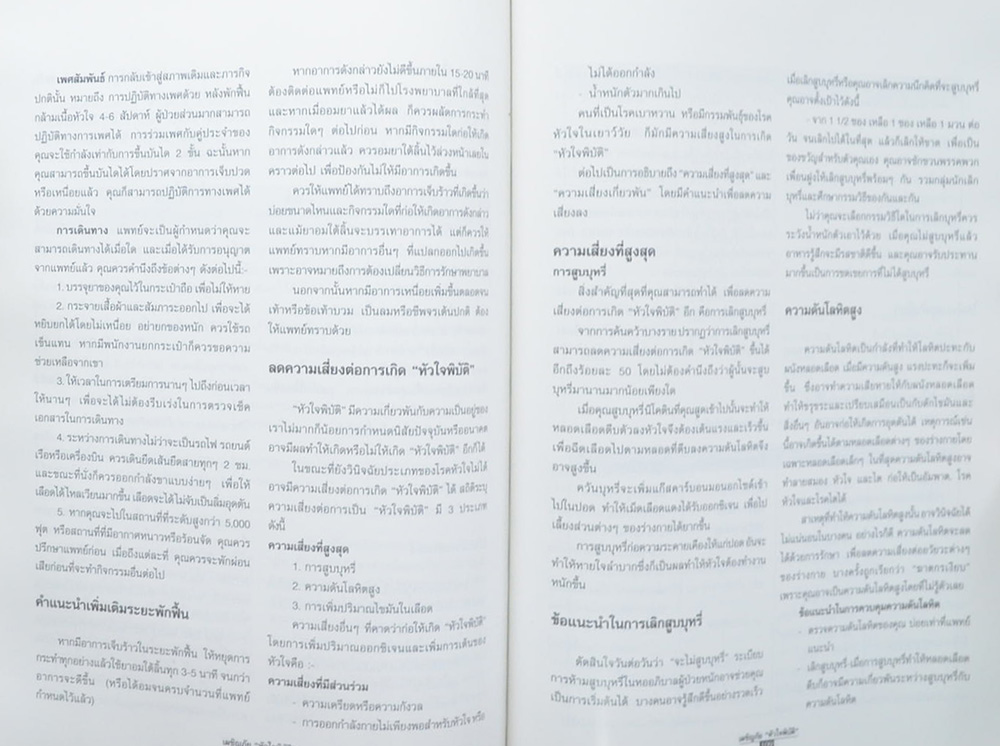 เพศสัมพันธ์ การกลับเข้าสู่สภาพเดิมและภารกิจ
ปกตินั้น หมายถึง การปฏิบัติทางเพศด้วย หลังพักฟื้น
กล้ามเนื้อหัวใจ 4-6 สัปดาห์ ผู้ป่วยส่วนมากสามารถ
ปฏิบัติทางการเพศได้ การร่วมเพศกับคู่ประจำของ
คุณจะใช้กำลังเท่ากับการขึ้นบันได 2 ชั้น ฉะนั้นหาก
คุณสามารถขึ้นบันไดได้โดยปราศจากอาการเจ็บปวด
หรือเหนื่อยแล้ว คุณก็สามารถปฏิบัติการทางเพศได้
ด้วยความมั่นใจ
การเดินทาง แพทย์จะเป็นผู้กำหนดว่าคุณจะ
สามารถเดินทางได้เมื่อใด และเมื่อได้รับการอนุญาต
จากแพทย์แล้ว คุณควรคำนึงถึงข้อต่างๆ ดังต่อไปนี้:-
1. บรรจุยาของคุณไว้ในกระเป๋าถือ เพื่อไม่ให้หาย
2. กระจายเสื้อผ้าและสัมภาระออกไป เพื่อจะได้
หยิบยกได้โดยไม่เหนื่อย อย่ายกของหนัก ควรใช้รถ
เข็นแทน หากมีพนักงานยกกระเป๋าก็ควรขอความ
ช่วยเหลือจากเขา
3. ให้เวลาในการเตรียมการนานๆ ไปถึงก่อนเวลา
ให้นานๆ เพื่อจะได้ไม่ต้องรีบเร่งในการตรวจเช็ค
เอกสารในการเดินทาง
4. ระหว่างการเดินทางไม่ว่าจะเป็นรถไฟ รถยนต์
เรือหรือเครื่องบิน ควรเดินยืดเส้นยืดสายทุกๆ 2 ชม.
และขณะที่นั่งก็ควรออกกำลังขาแบบง่ายๆ เพื่อให้
เลือดได้ไหลเวียนมากขึ้น เลือดจะได้ไม่จับเป็นลิ่มอุดตัน
5. หากคุณจะไปในสถานที่ที่ระดับสูงกว่า 5,000
ฟุต หรือสถานที่ที่มีอากาศหนาวหรือร้อนจัด คุณควร
ปรึกษาแพทย์ก่อน เมื่อถึงแต่ละที่ คุณควรจะพักผ่อน
เสียก่อนที่จะทำกิจกรรมอื่นต่อไป
คำแนะนำเพิ่มเติมระยะพักฟื้น
หากมีอาการเจ็บร้าวในระยะพักฟื้น ให้หยุดการ
กระทำทุกอย่างแล้วใช้ยาอมใต้ลิ้นทุก 3-5 นาที จนกว่า
อาการจะดีขึ้น (หรือได้อมจนครบจำนวนที่แพทย์
กำหนดไว้แล้ว)
หากอาการดังกล่าวยังไม่ดีขึ้นภายใน 15-20 นาที
ต้องติดต่อแพทย์หรือไม่ก็ไปโรงพยาบาลที่ใกล้ที่สุด
และหากเมื่ออมยาแล้วได้ผล ก็ควรผลัดการกระทำ
กิจกรรมใดๆ ต่อไปก่อน หากมีกิจกรรมใดก่อให้เกิด
อาการดังกล่าวแล้ว ควรอมยาใต้ลิ้นไว้ล่วงหน้าเลยใน
คราวต่อไป เพื่อป้องกันไม่ให้มีอาการเกิดขึ้น
ควรให้แพทย์ได้ทราบถึงอาการเจ็บร้าวที่เกิดขึ้นว่า
บ่อยขนาดไหนและกิจกรรมใดที่ก่อให้เกิดอาการดังกล่าว
และแม้ยาอมใต้ลิ้นจะบรรเทาอาการได้ แต่ก็ควรให้
แพทย์ทราบหากมีอาการอื่นๆ ที่แปลกออกไปเกิดขึ้น
เพราะอาจหมายถึงการต้องเปลี่ยนวิธีการรักษาพยาบาล
นอกจากนั้นหากมีอาการเหนื่อยเพิ่มขึ้นตลอดจน
เท้าหรือข้อเท้าบวม เป็นลมหรือชีพจรเต้นปกติ ต้อง
ให้แพทย์ทราบด้วย
ลดความเสี่ยงต่อการเกิด "หัวใจพิบัติ"
"หัวใจพิบัติ" มีความเกี่ยวพันกับความเป็นอยู่ของ
เราไม่มากก็น้อยการกำหนดนิสัยปัจจุบันหรืออนาคต
อาจมีผลทำให้เกิดหรือไม่ให้เกิด "หัวใจพิบัติ" อีกก็ได้
ในขณะที่ยังวินิจฉัยประเภทของโรคหัวใจไม่ได้
อาจมีความเสี่ยงต่อการเกิด "หัวใจพิบัติ" ได้ สถิติระบุ
ความเสี่ยงต่อการเป็น "หัวใจพิบัติ" มี 3 ประเภท
ดังนี้
ความเสี่ยงที่สูงสุด
1. การสูบบุหรี่
2. ความดันโลหิตสูง
3. การเพิ่มปริมาณไขมันในเลือด
ความเสี่ยงอื่นๆ ที่คาดว่าก่อให้เกิด "หัวใจพิบัติ"
โดยการเพิ่มปริมาณออกซิเจนและเพิ่มการเต้นของ
หัวใจคือ :-
ความเสี่ยงที่มีส่วนร่วม
- ความเครียดหรือความกังวล
- การออกกำลังกายไม่เพียงพอสำหรับหัวใจ หรือ
ไม่ได้ออกกำลัง
- น้ำหนักตัวมากเกินไป
คนที่เป็นโรคเบาหวาน หรือมีกรรมพันธุ์ของโรค
หัวใจในเยาว์วัย ก็มักมีความเสี่ยงสูงในการเกิด
"หัวใจพิบัติ"
ต่อไปเป็นการอธิบายถึง "ความเสี่ยงที่สูงสุด" และ
"ความเสี่ยงเกี่ยวพัน" โดยมีคำแนะนำเพื่อลดความ
เสี่ยงลง
ความเสี่ยงที่สูงสุด
การสูบบุหรี่
สิ่งสำคัญที่สุดที่คุณสามารถทำได้ เพื่อลดความ
เสี่ยงต่อการเกิด "หัวใจพิบัติ" อีก คือการเลิกสูบบุหรี่
จากการค้นคว้าบางราย ปรากฏว่าการเลิกสูบบุหรี่
สามารถลดความเสี่ยงต่อการเกิด "หัวใจพิบัติ" ขึ้นได้
อีกถึงร้อยละ 50 โดยไม่ต้องคำนึงถึงว่าผู้นั้นจะสูบ
บุหรี่มานานมากน้อยเพียงใด
เมื่อคุณสูบบุหรี่นิโคตินที่คุณสูดเข้าไปนั้นจะทำให้
หลอดเลือดตีบตัวลงหัวใจจึงต้องเต้นแรงและเร็วขึ้น
เพื่อฉีดเลือดไปตามหลอดที่ตีบลงความดันโลหิตจึง
อาจสูงขึ้น
ควันบุหรี่จะเพิ่มแก๊สคาร์บอนมอนอกไซด์เข้า
ไปในปอด ทำให้เม็ดเลือดแดงได้รับออกซิเจน เพื่อไป
เลี้ยงส่วนต่างๆ ของร่างกายได้ยากขึ้น
การสูบบุหรี่ก่อความระคายเคืองให้แก่ปอด อันจะ
ทำให้หายใจลำบากซึ่งก็เป็นผลทำให้หัวใจต้องทำงาน
หนักขึ้น
ข้อแนะนำในการเลิกสูบบุหรี่
ตัดสินใจวันต่อวันว่า "จะไม่สูบบุหรี่" ระเบียบ
การห้ามสูบบุหรี่ในหออภิบาลผู้ป่วยหนักอาจช่วยคุณ
เป็นการเริ่มต้นได้ บางคนอาจรู้สึกดีขึ้นอย่างรวดเร็ว
เมื่อเลิกสูบบุหรี่หรือคุณอาจเลิกความนึกคิดที่จะสูบบุหรี่
คุณอาจตั้งเป้าไว้ดังนี้
- จาก 1 1/2 ซอง เหลือ 1 ซอง เหลือ 1 มวน ต่อ
วัน จนเลิกไปได้ในที่สุด แล้วก็เลิกให้ขาด เพื่อเป็น
ของขวัญสำหรับตัวคุณเอง คุณอาจชักชวนพรรคพวก
เพื่อนฝูงให้เลิกสูบบุหรี่พร้อมๆ กัน รวมกลุ่มนักเลิก
บุหรี่และศึกษากรรมวิธีของกันและกัน
ไม่ว่าคุณจะเลือกกรรมวิธีใดในการเลิกบุหรี่ควร
ระวังน้ำหนักตัวเอาไว้ด้วย เมื่อคุณไม่สูบบุหรี่แล้ว
อาหารรู้สึกจะมีรสชาติดีขึ้น และคุณอาจรับประทาน
มากขึ้นเป็นการชดเชยการที่ไม่ได้สูบบุหรี่
ความดันโลหิตสูง
ความดันโลหิตเป็นกำลังที่ทำให้โลหิตปะทะกับ
ผนังหลอดเลือด เมื่อมีความดันสูง แรงปะทะก็จะเพิ่ม
ขึ้น ซึ่งอาจทำความเสียหายให้กับผนังหลอดเลือด
ทำให้ขรุขระและเปรียบเสมือนเป็นกับดักไขมันและ
สิ่งอื่นๆ อันอาจก่อให้เกิดการอุดตันได้ เหตุการณ์เช่น
นี้อาจเกิดขึ้นได้ตามหลอดเลือดต่างๆ ของร่างกายโดย
เฉพาะหลอดเลือดเล็กๆ ในที่สุดความดันโลหิตสูงอาจ
ทำลายสมอง หัวใจ และไต ก่อให้เป็นอัมพาต, โรค
หัวใจและโรคไตได้
สาเหตุที่ทำให้ความดันโลหิตสูงนั้น อาจวินิจฉัยได้
ไม่แน่นอนในบางคน อย่างไรก็ดี ความดันโลหิตจะลด
ได้ด้วยการรักษา เพื่อลดความเสี่ยงต่ออวัยวะต่างๆ
ของร่างกาย บางครั้งถูกเรียกว่า "ฆาตกรเงียบ"
เพราะคุณอาจเป็นความดันโลหิตสูงโดยที่ไม่รู้ตัวเลย
ข้อแนะนำในการควบคุมความดันโลหิต
- ตรวจความดันโลหิตของคุณ บ่อยเท่าที่แพทย์
แนะนำ
- เลิกสูบบุหรี่-เมื่อการสูบบุหรี่ทำให้หลอดเลือด
ตีบก็อาจมีความเกี่ยวพันระหว่างสูบบุหรี่กับ
ความดันโลหิต
เผชิญภัย "หัวใจพิบัติ"